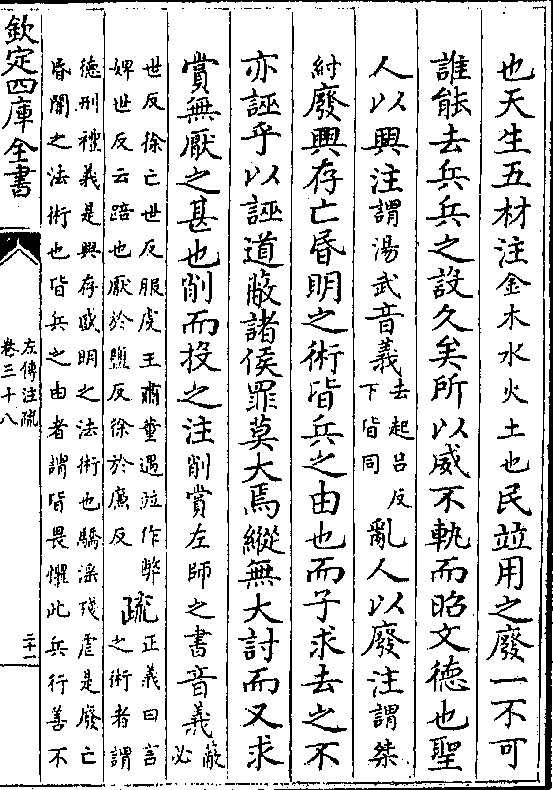 也天生五材注金木水火土也民竝用之廢一不可
誰能去兵兵之設久矣所以威不軌而昭文德也聖
人以興注謂湯武音義去起呂反下皆同亂人以廢注謂桀
紂廢興存亡昏明之術皆兵之由也而子求去之不
亦誣乎以誣道蔽諸侯罪莫大焉縱無大討而又求
賞無厭之甚也削而投之注削賞左師之書音義蔽必
世反徐亡世反服虔王肅董遇竝作弊
婢世反云踣也厭於鹽反徐於廉反
疏正義曰言
之術者謂
德刑禮義是興存盛明之法術也驕淫殘虐是廢亡
昏闇之法術也皆兵之由者謂皆畏懼此兵行善不
欽定四庫全書
左傳注疏
卷三十八
二十一